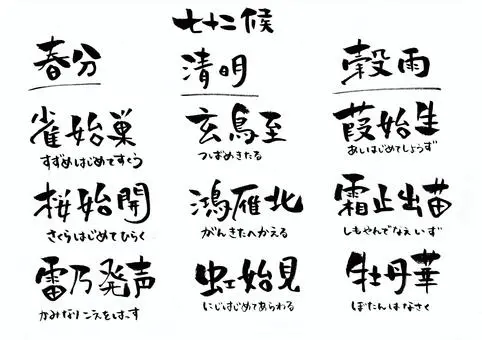 七十二候
春分
雀始巣
すずめはじめてすくう
桜始開
さくらはじめてひらく
雷乃発声
かみなりこえをはっす
清明
玄鳥至
つばめきたる
鴻雁北
がんきたへかえる
虹始見
にじはじめてあらわる
穀雨
葭始生
あしはじめてしょうず
霜止出苗
しもやんでなえいず
牡丹華
ぼたんはなさく